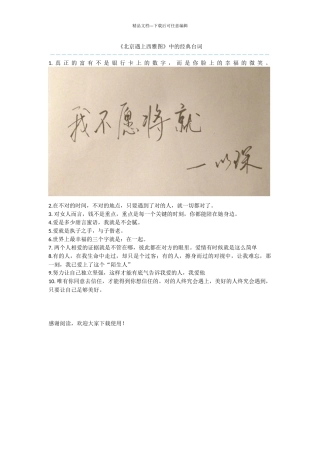 精品文档---下载后可任意编辑
《北京遇上西雅图》中的经典台词
1.真正的富有不是银行卡上的数字，而是你脸上的幸福的微笑。
我不愿将就
——以琛
2.在不对的时间，不对的地点，只要遇到了对的人，就一切都对了。
3.对女人而言，钱不是重点，重点是每一个关键的时刻，你都能陪在她身边。
4.爱是多少甜言蜜语，我就是不会腻。
5.爱就是执子之手，与子偕老。
6.世界上最幸福的三个字就是：在一起。
7.两个人相爱的证据就是不管在哪，彼此都在对方的眼里。爱情有时候就是这么简单
8.有的人，在我生命中走过，却只是个过客；有的人，擦身而过的对视中，让我难忘，那
一刻，我已爱上了这个“陌生人”
9.努力让自己独立坚强，这样才能有底气告诉我爱的人，我爱他
10.唯有你同意去信任，才能得到你想信任的。对的人终究会遇上，美好的人终究会遇到，
只要让自己足够美好。
感谢阅读，欢迎大家下载使用！